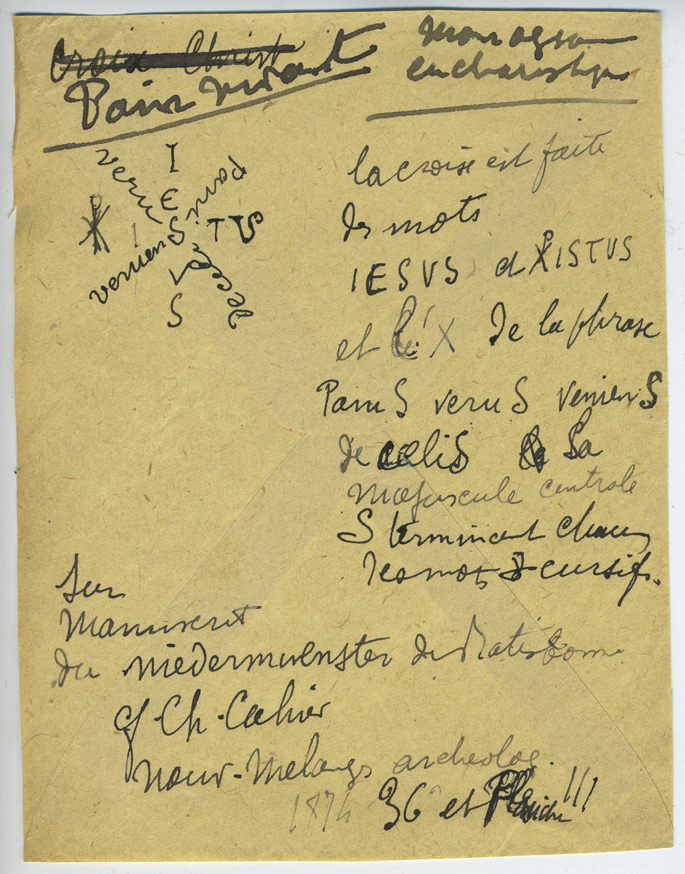 Croix Christ
Pain vivant
Monogram
eucharistique
I
E
S
V
S
X I S T V S
veru
Pani
veniens
de celi
la croix est faite
des mots
IESVS et XPISTVS
et l'X de la phrase
PaniS veruS venienS
de celiS La
majuscule centrale
S terminant chacun
des mots cursifs.
Sur
Manuscrit
du niedermuenster de Ratisbonne
cf Ch. Cahier
nouv. Melanges archeolog.
1874 36 et Planche !!!